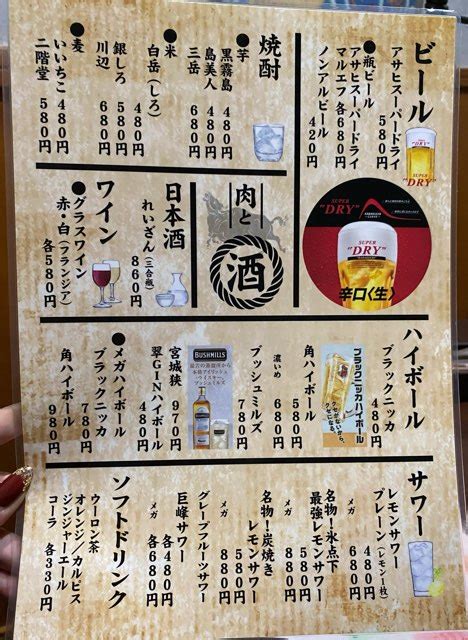 ビール
アサヒスーパードライ
580円
●瓶ビール
アサヒスーパードライ
マルエフ 各680円
ノンアルビール
420円
焼酎
●芋
黒霧島 480円
島美人 480円
三岳 580円
●米
白岳(しろ)
480円
銀しろ 580円
川辺 680円
●麦
いいちこ 480円
二階堂 580円
肉と
酒
日本酒
れいざん(三合瓶)
860円
ワイン
●グラスワイン
赤・白(フランジア)
各580円
SUPER
"DRY"
SUPER
"DRY"
辛口〈生〉
ハイボール
ブラックニッカ
480円
ブラックニッカハイボール
クセがないから、
クセになる。
角ハイボール
580円
濃いめ 680円
ブッシュミルズ
780円
BUSHMILLS
宮城狭 970円
翠GINハイボール
480円
●メガハイボール
ブラックニッカ
880円
角ハイボール
980円
サワー
レモンサワー
プレーン(レモン1枚)
480円
メガ 680円
名物!氷点下
最強レモンサワー
580円
メガ 880円
名物!炭焼き
レモンサワー
580円
メガ 880円
グレープフルーツサワー
巨峰サワー
各480円
メガ 各680円
ソフトドリンク
ウーロン茶
オレンジ/カルピス
ジンジャーエール
コーラ 各330円